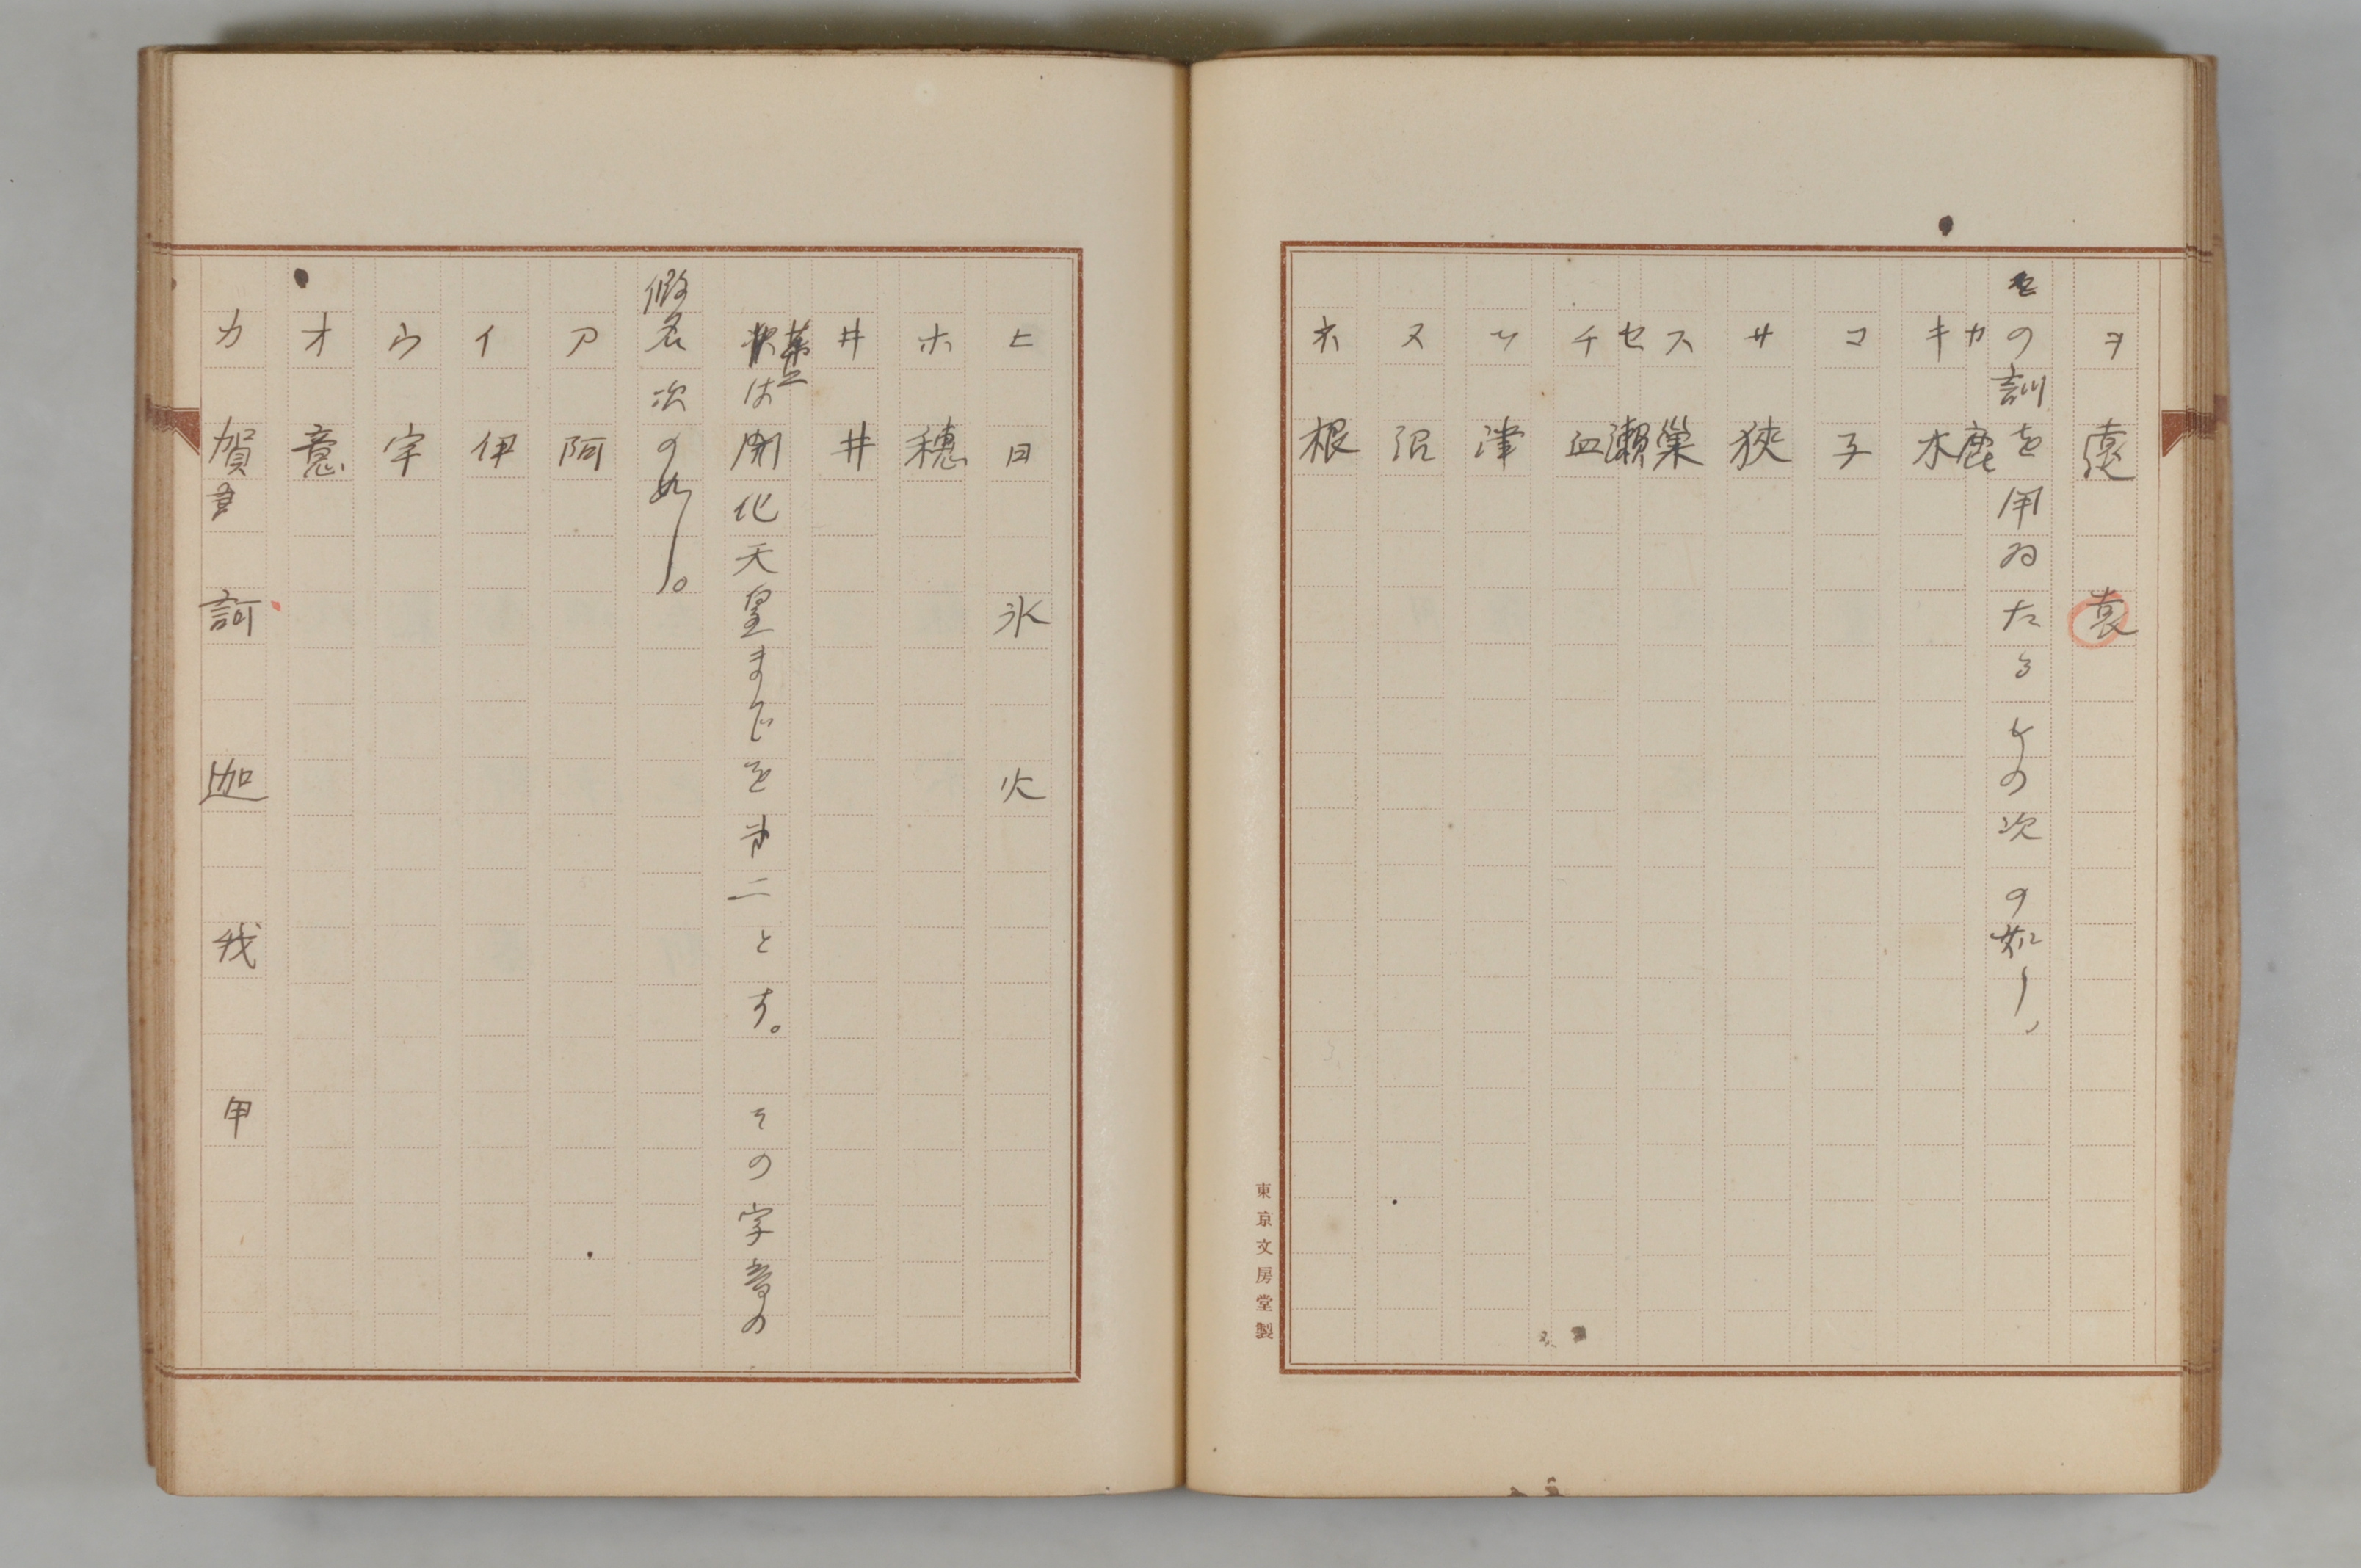 ヲ 遠 袁
その訓を用ゐたるもの次の如し、
カ 鹿
キ 木
コ 子
サ 狭
ス 巣
セ 瀬
チ 血
ツ 津
ヌ 沼
ネ 根
東京文房堂製
ヒ 日 氷 火
ホ 穂
井 井
は開化天皇までを第二とす。その字音の
假名次の如し。
ア 阿
イ 伊
ウ 宇
オ 意
カ 賀 訶 迦 我 甲